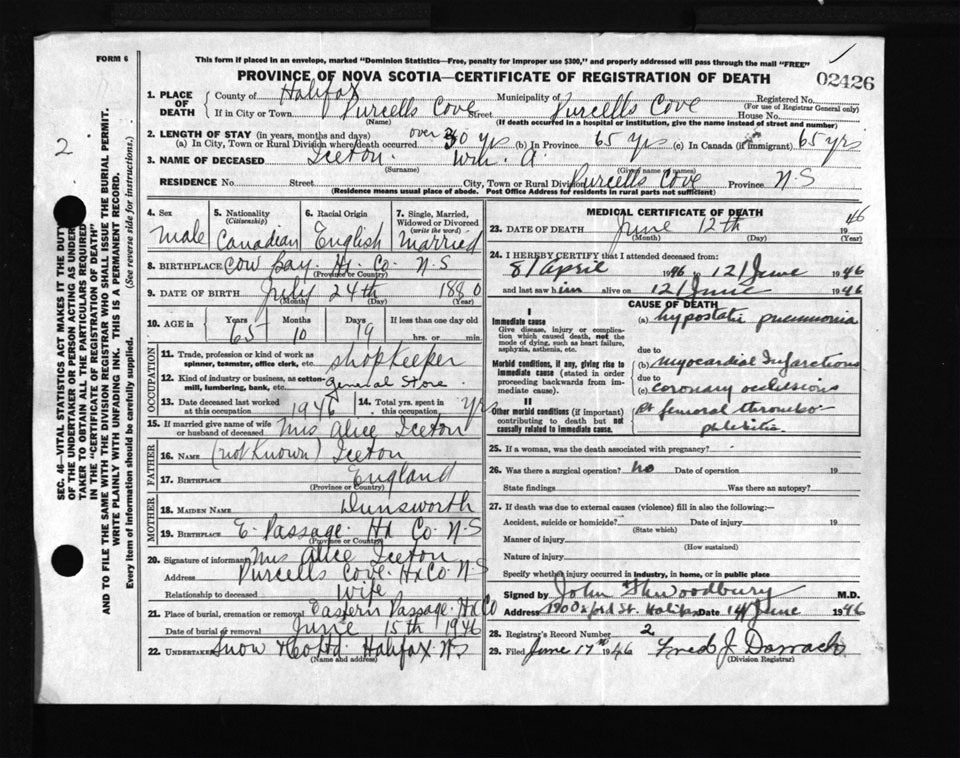 FORM 6
This form if placed in an envelope, marked "Dominion Statistics—Free, penalty for improper use $300," and properly addressed will pass through the mail "FREE"
PROVINCE OF NOVA SCOTIA—CERTIFICATE OF REGISTRATION OF DEATH
02426
2
SEC. 46—VITAL STATISTICS ACT MAKES IT THE DUTY
OF THE UNDERTAKER OR PERSON ACTING AS UNDER
TAKER TO OBTAIN ALL THE PARTICULARS REQUIRED
IN THE "CERTIFICATE OF REGISTRATION OF DEATH"
AND TO FILE THE SAME WITH THE DIVISION REGISTRAR WHO SHALL ISSUE THE BURIAL PERMIT.
WRITE PLAINLY WITH UNFADING INK. THIS IS A PERMANENT RECORD.
Every item of information should be carefully supplied. (See reverse side for instructions.)
1. PLACE OF DEATH
County of Halifax Municipality of Purcells Cove Registered No.
(For use of Registrar General only)
If in City or Town Purcells Cove Street House No.
(Name) (If death occurred in a hospital or institution, give the name instead of street and number)
2. LENGTH OF STAY (in years, months and days)
(a) In City, Town or Rural Division where death occurred over 30 yrs (b) In Province 65 yrs (c) In Canada (if immigrant) 65 yrs
3. NAME OF DECEASED Iceton. Wm. A.
(Surname) (Given name or names)
RESIDENCE No. Street City, Town or Rural Division Purcells Cove Province N S
(Residence means usual place of abode. Post Office Address for residents in rural parts not sufficient)
4. Sex
Male
5. Nationality (Citizenship)
Canadian
6. Racial Origin
English
7. Single, Married, Widowed or Divorced (write the word)
Married
8. BIRTHPLACE Cow Bay. Hx. Co. N-S
(Province or Country)
9. DATE OF BIRTH July 24th 1880
(Month) (Day) (Year)
10. AGE in Years 65 Months 10 Days 19 If less than one day old
hrs. or min.
OCCUPATION
11. Trade, profession or kind of work as spinner, teamster, office clerk, etc. shopkeeper
12. Kind of industry or business, as cotton-mill, lumbering, bank, etc. General Store
13. Date deceased last worked at this occupation 1946
14. Total yrs. spent in this occupation yrs
15. If married give name of wife or husband of deceased Mrs Alice Iceton
FATHER
16. NAME (not known) Iceton
17. BIRTHPLACE England
(Province or Country)
MOTHER
18. MAIDEN NAME Dunsworth
19. BIRTHPLACE E. Passage. Hx Co. N-S
(Province or Country)
20. Signature of informant Mrs Alice Iceton
Address Purcells Cove. Hx Co. N-S
Relationship to deceased Wife
21. Place of burial, cremation or removal Eastern Passage. Hx Co
Date of burial or removal June 15th 1946
22. UNDERTAKER Snow & Co Ltd. Halifax N-S
(Name and address)
MEDICAL CERTIFICATE OF DEATH
23. DATE OF DEATH June 12th 1946
(Month) (Day) (Year)
24. I HEREBY CERTIFY that I attended deceased from:
8/April 1946 to 12/June 1946
and last saw him alive on 12/June 1946
CAUSE OF DEATH
I
Immediate cause
Give disease, injury or complication which caused death, not the mode of dying, such as heart failure, asphyxia, asthenia, etc.
(a) hypostatic pneumonia
due to
Morbid conditions, if any, giving rise to immediate cause (stated in order proceeding backwards from immediate cause).
(b) myocardial Infarctions
due to
(c) coronary occlusions
II
Other morbid conditions (if important) contributing to death but not causally related to immediate cause.
femoral thrombo-
phlebitis
25. If a woman, was the death associated with pregnancy?
26. Was there a surgical operation? no Date of operation 19
State findings Was there an autopsy?
27. If death was due to external causes (violence) fill in also the following:—
Accident, suicide or homicide? Date of injury 19
(State which)
Manner of injury
(How sustained)
Nature of injury
Specify whether injury occurred in industry, in home, or in public place
Signed by John Woodbury M.D.
Address Oxford St. Halifax Date 14 June 1946
28. Registrar's Record Number 2
29. Filed June 17th 1946 Fred J Darrach
(Division Registrar)